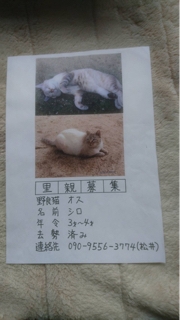 里親募集
野良猫 オス
名前 シロ
年令 3才~4才
去勢 済み
連絡先 090-9556-3774(松井)